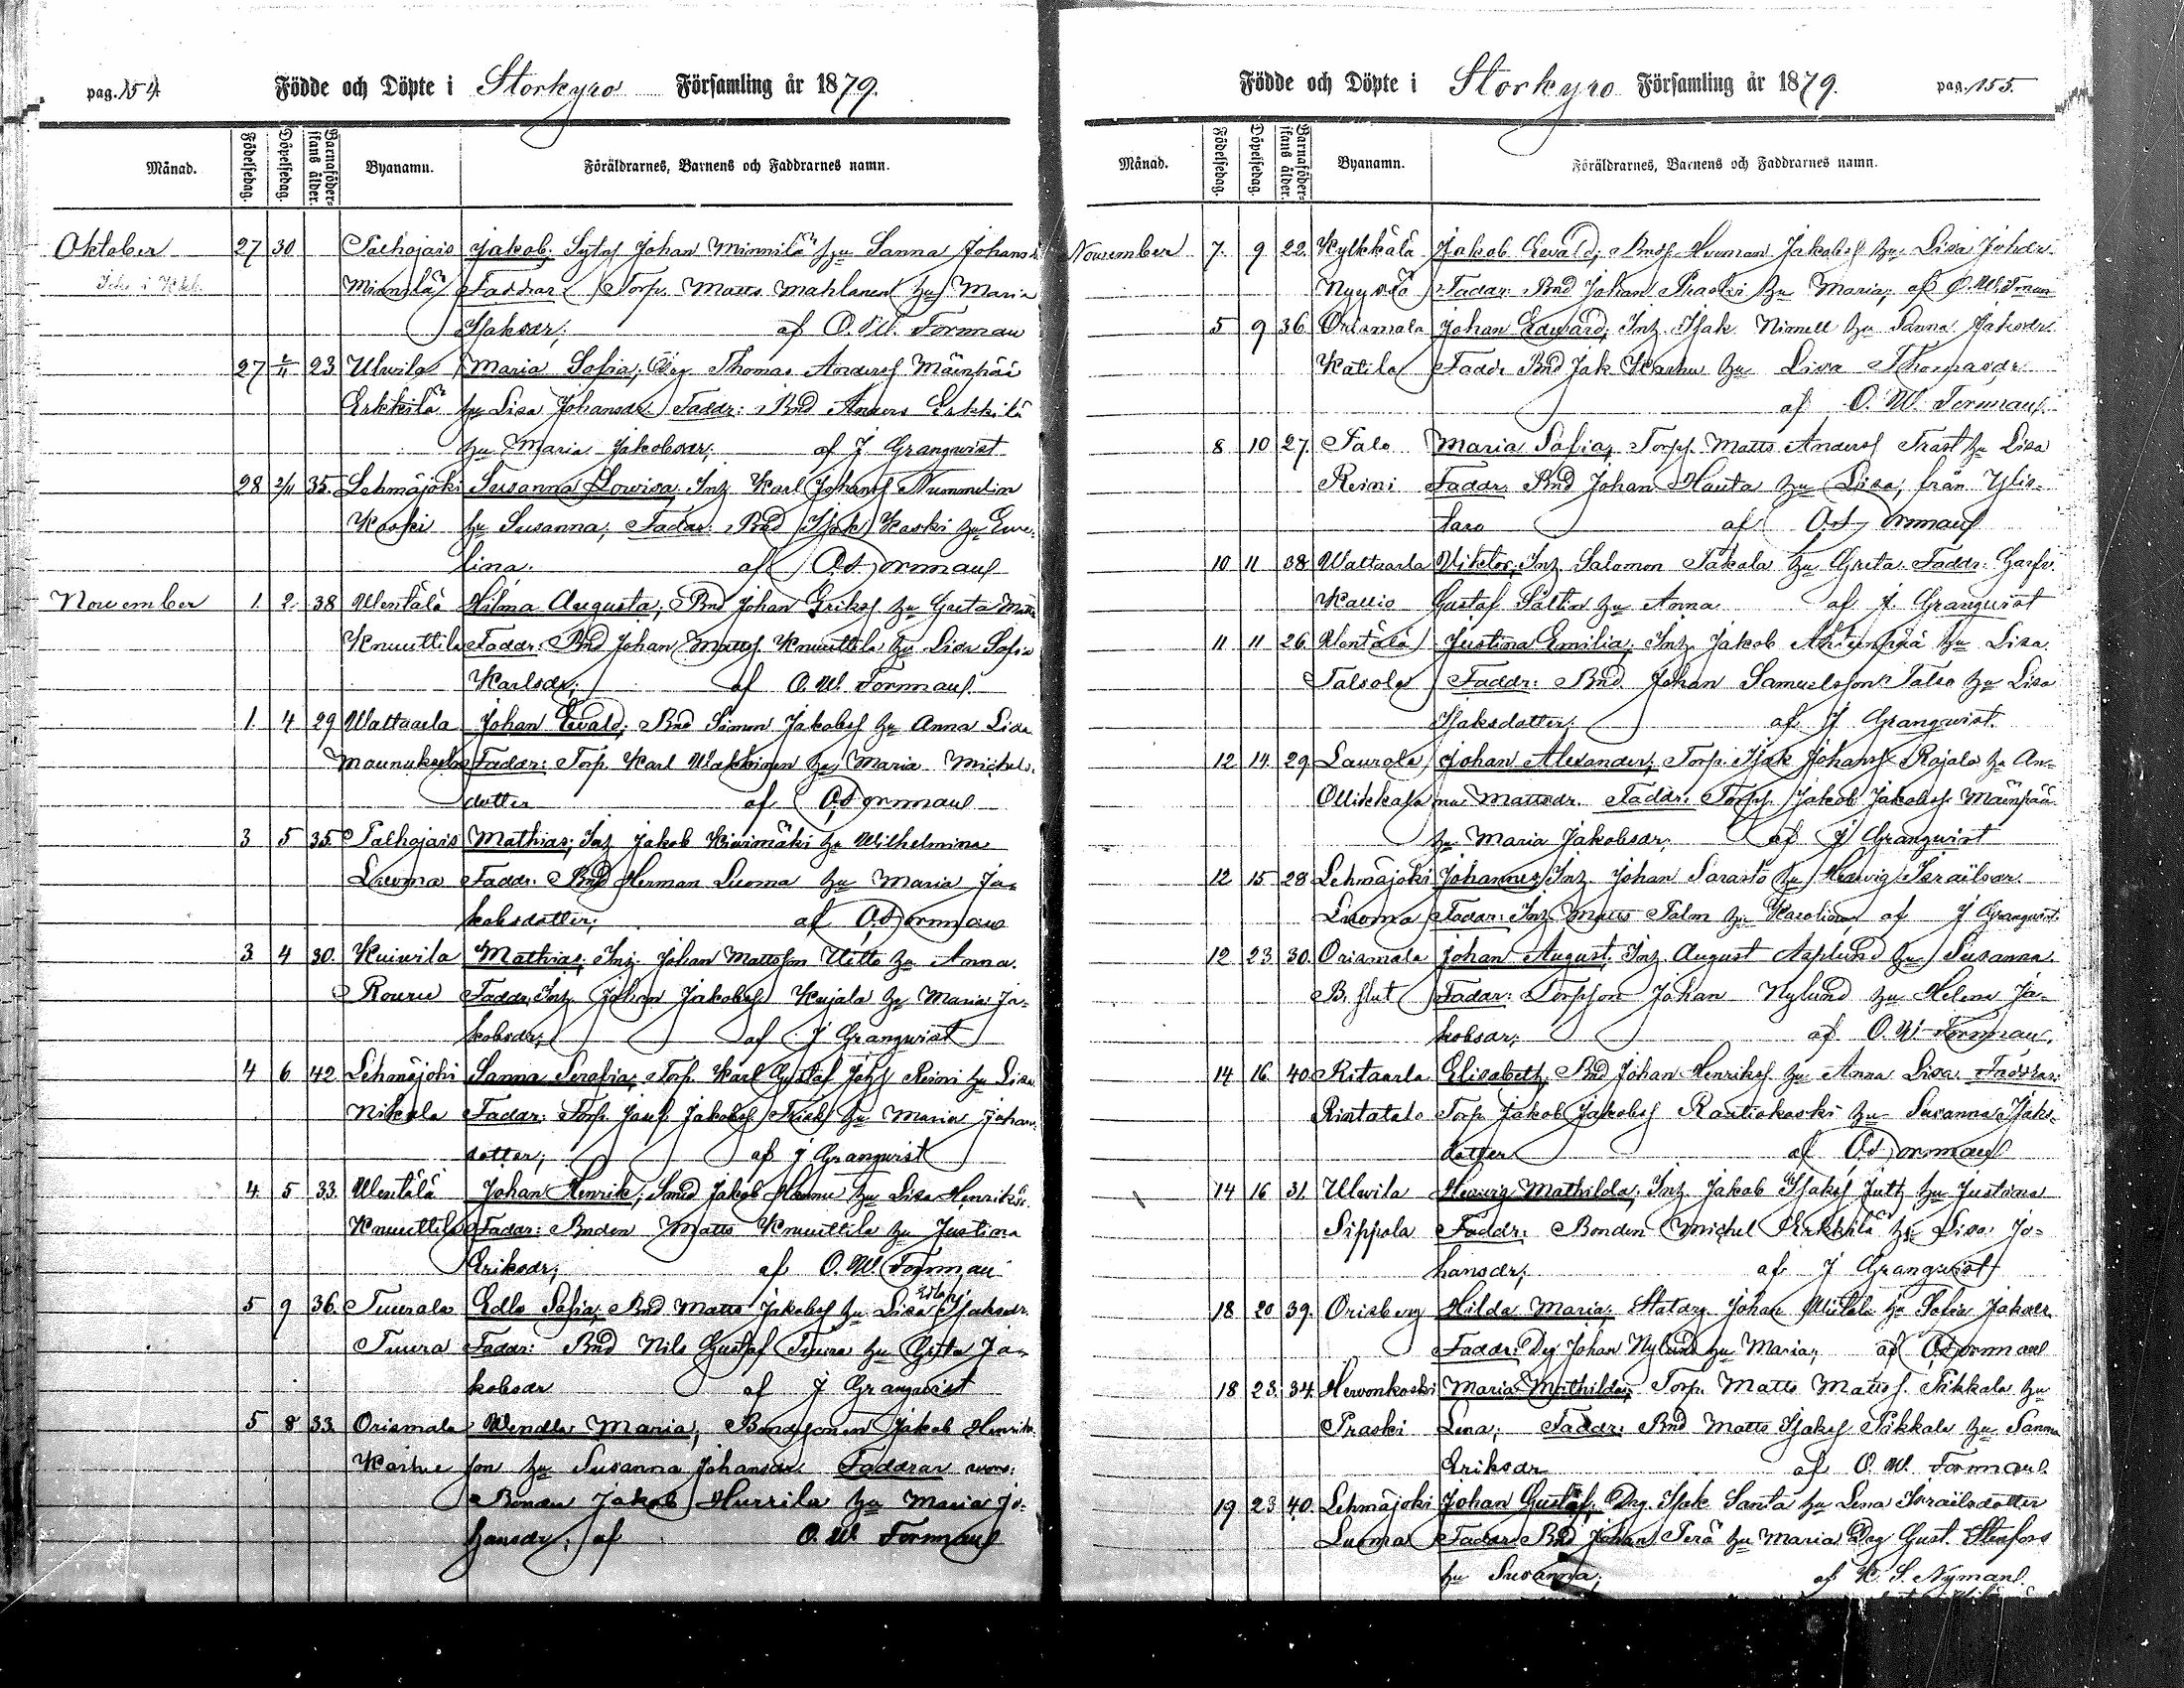 pag. 154
Födde och Döpte i Storkyro Församling år 1879.
Månad. Födelsedag. Döpelsedag. Barnaföderskans ålder. Byanamn. Föräldrarnes, Barnens och Faddrarnes namn.
Oktober 27 30 Palhojais Jakob; Johan Minnilä hu Sanna Johans
Minnilä Faddrar: Torp. Matts Mahlanen hu Maria
Isaksdr; af O. W. Forsman
27 2/11 23 Ulwila Maria Sofia; Thomas Andersf Mäinpää
Erkkilä hu Lisa Johansdr. Faddr: Bnd Anders Erkkilä
hu Maria Jakobsdr; af J Granqwist
28 2/11 35. Lehmäjoki Susanna Lowisa. Inh Karl Johansf Nummelin
Koski hu Susanna; Faddr: Bnd Isak Koski hu Ewe-
lina. af O.W. Formanf
November 1. 2. 38 Wentälä Hilma Augusta; Bnd Johan Eriksf hu Greta Matts
Knuuttila Faddr: Bnd Johan Mattsf Knuuttila hu Lisa Sofia
Karlsdr; af O. W. Formanf
1. 4 29 Wattaala Johan Ewald; Bnd Simon Jakobsf hu Anna Lisa
Maunuksela Faddr: Torp Karl Wakkinen hu Maria Michels-
dotter af O.W. Formanf
3 5 35. Palhojais Mathias; Inh Jakob Kiwimäki hu Wilhelmina
Luoma Faddr. Bnd Herman Luoma hu Maria Ja-
kobsdotter; af O.W. Forman
3 4 30. Kuiwila Mathias; Inh. Johan Mattsson Uitto hu Anna.
Rouru Faddr, Inh. Johan Jakobsf Kujala hu Maria Ja-
kobsdr; af J Granqwist
4 6 42 Lehmäjoki Sanna Serafia; Torp Karl Gustaf Johsf Reini hu Lisa
Nikala Faddr: Torp Josef Jakobsf Frick hu Maria Johans-
dotter; af J Granqwist
4. 5 33. Wentälä Johan Henrik; Smed Jakob Hannu hu Lisa Henriksdr.
Knuuttila Faddr: Bnden Matts Knuuttila hu Justina
Eriksdr; af O. W. Forman
5 9 36. Tuurala Edla Sofia; Bnd Matts Jakobsf hu Lisa Isaksdr
Tuura Faddr: Bnd Nils Gustaf Tuura hu Greta Ja-
kobsdr af J Granqwist
5 8 33. Orismala Wendla Maria; Bondesonen Jakob Henriks-
Kaihu son hu Susanna Johansdr. Faddrar woro:
Bonden Jakob Hurrila hu Maria Jo-
hansdr; af O. W. Formanf
Födde och Döpte i Storkyro Församling år 1879. pag. 155.
Månad. Födelsedag. Döpelsedag. Barnaföderskans ålder. Byanamn. Föräldrarnes, Barnens och Faddrarnes namn.
November 7. 9 22. Kylkkälä Jakob Ewald; Bndf. Herman Jakobsf hu Lisa Johdr.
Nygård Faddr: Bnd Johan Praski hu Maria; af O. W. Forman
5 9 36 Orismala Johan Edward; Inh. Isak Ninnell hu Sanna Jaksdr.
Katila Faddr Bnd Jak Kaihu hu Lisa Thomasdr.
af O. W. Formanf
8 10 27. Palo Maria Sofia; Torpf. Matts Andersf Trast hu Lisa
Reini Faddr. Bnd Johan Hauta hu Lisa; från Ylis-
taro af O.W. Formanf
10 11 38. Wattaala Wiktor; Inh Salomon Takala hu Greta. Faddr:
Kallio Gustaf Saltin hu Anna af J. Granqwist
11 11 26. Wentälä Justina Emilia; Inh Jakob hu Lisa
Talsola Faddr: Bnd Johan Samuelsson Talso hu Lisa
Isaksdotter; af J Granqwist.
12 14 29 Laurola Johan Alexander; Torp. Isak Johansf Rajala hu An-
Ollikkala na Mattsdr. Faddr: Torpf. Jakob Jakobsf Mäinpää
hu Maria Jakobsdr; af J Granqwist
12 15 28 Lehmäjoki Johannes; Inh Johan Sarasto hu Hedwig Israilsdr.
Luoma Faddr: Inh Matts Palm hu Karolina; af J Granqwist
12 23 30. Orismala Johan August. Inh August Asplund hu Susanna.
B. slut Faddr: Torpson Johan Nylund hu Helena Ja-
kobsdr; af O. W. Forman.
14 16 40. Ritaala Elisabeth; Bnd Johan Henriksf hu Anna Lisa. Faddrar:
Rintatalo Torp Jakob Jakobsf Rautiokoski hu Susanna Isaks-
dotter af O.W. Formanf
14 16 31 Ulwila Hedwig Mathilda; Inh Jakob Isaksf Jutz hu Justina
Sippola Faddr: Bonden Michel Erkkilä hu Lisa Jo-
hansdr; af J Granqwist
18 20 39. Orisberg Hilda Maria; Johan hu Sofia Jaksdr
Faddr: Drg Johan Nylund hu Maria; af O.W. Formanf
18 23. 34. Hewonkoski Maria Mathilda; Torp. Matts Mattsf. Pikkala hu
Praski Lena; Faddr: Bnd Matts Isaksf Pikkala hu Sanna
Eriksdr af O. W. Formanf.
19 23 40. Lehmäjoki Johan Gustaf; Drg. Isak Santa hu Lena Israilsdotter
Luoma Faddr: Bnd Johan Perä hu Maria Drg Gust. Stenfors
hu Susanna; af K. S. Nymanf.